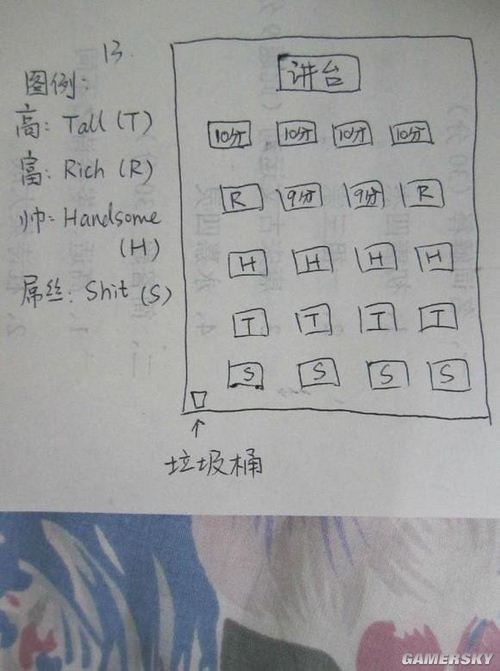 13.
图例:
高: Tall (T)
富: Rich (R)
帅: Handsome
(H)
屌丝: Shit (S)
讲台
10分 10分 10分 10分
R 9分 9分 R
H H H H
T T T T
S S S S
垃圾桶
GAMERSKY